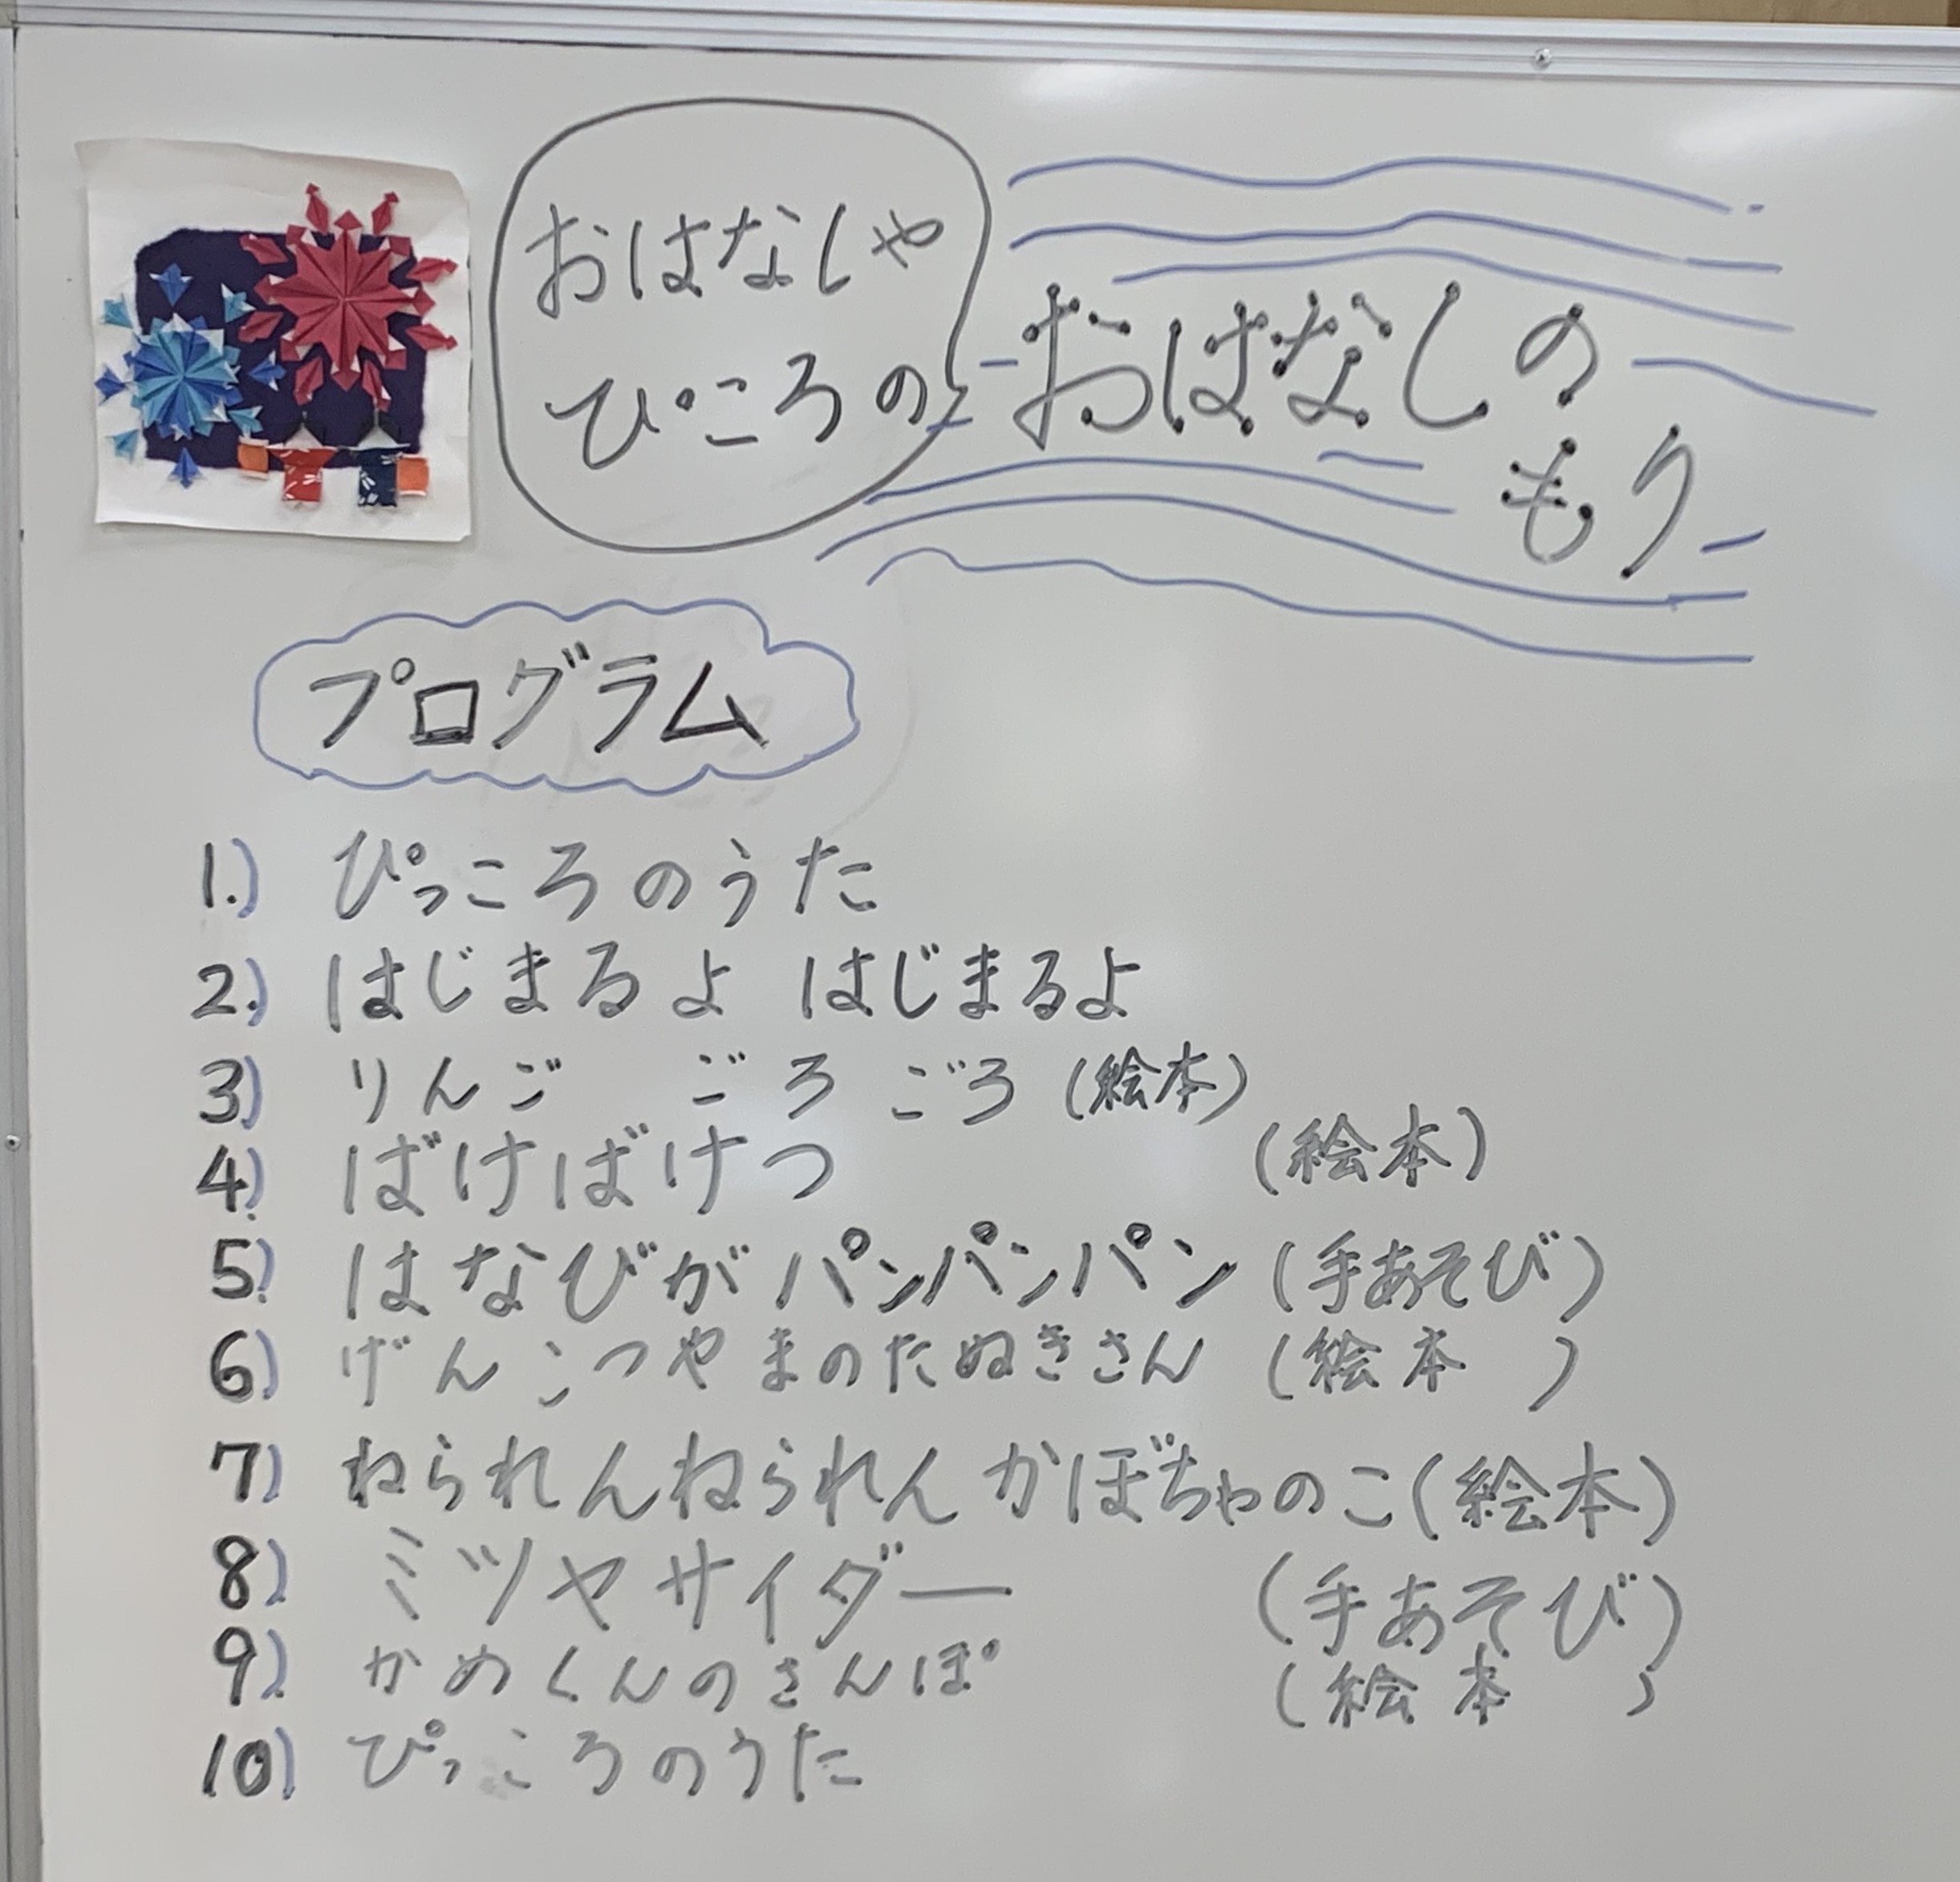 おはなしや
ぴころの
おはなしの
もり
プログラム
1.) ぴっころのうた
2.) はじまるよ はじまるよ
3) りんご ごろごろ (絵本)
4) ばけばけつ (絵本)
5) はなびがパンパンパン (手あそび)
6) げんこつやまのたぬきさん (絵本)
7) ねられんねられんかぼちゃのこ (絵本)
8) ミツヤサイダー (手あそび)
9) かめくんのさんぽ (絵本)
10) ぴっころのうた